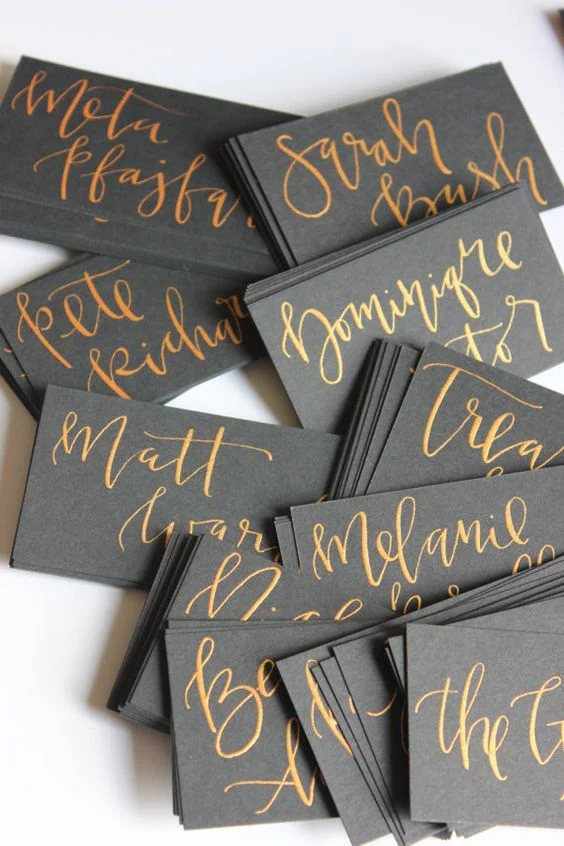 Meta
Pfajfar
Sarah
Bush
Pete
Richar
Dominiqre
tor
Matt
War
Trea
Melanie
Be
the G